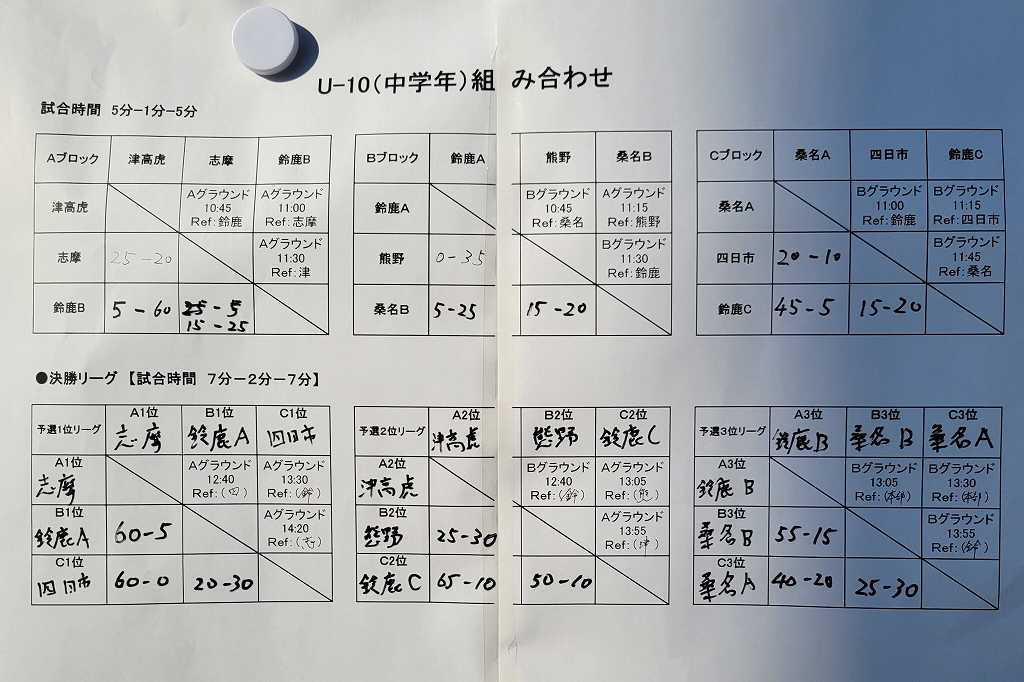 U-10(中学年)組み合わせ
試合時間 5分-1分-5分
Aブロック 津高虎 志摩 鈴鹿B
津高虎 Aグラウンド 10:45 Ref:鈴鹿 Aグラウンド 11:00 Ref:志摩
志摩 25-20 Aグラウンド 11:30 Ref:津
鈴鹿B 5-60 25-5 15-25
Bブロック 鈴鹿A 熊野 桑名B
鈴鹿A Bグラウンド 10:45 Ref:桑名 Aグラウンド 11:15 Ref:熊野
熊野 0-35 Bグラウンド 11:30 Ref:鈴鹿
桑名B 5-25 15-20
Cブロック 桑名A 四日市 鈴鹿C
桑名A Bグラウンド 11:00 Ref:鈴鹿 Bグラウンド 11:15 Ref:四日市
四日市 20-10 Bグラウンド 11:45 Ref:桑名
鈴鹿C 45-5 15-20
●決勝リーグ 【試合時間 7分-2分-7分】
予選1位リーグ A1位 志摩 B1位 鈴鹿A C1位 四日市
A1位 志摩 Aグラウンド 12:40 Ref:(四) Aグラウンド 13:30 Ref:(鈴)
B1位 鈴鹿A 60-5 Aグラウンド 14:20 Ref:(志)
C1位 四日市 60-0 20-30
予選2位リーグ A2位 津高虎 B2位 熊野 C2位 鈴鹿C
A2位 津高虎 Bグラウンド 12:40 Ref:(鈴) Aグラウンド 13:05 Ref:(熊)
B2位 熊野 25-30 Aグラウンド 13:55 Ref:(津)
C2位 鈴鹿C 65-10 50-10
予選3位リーグ A3位 鈴鹿B B3位 桑名B C3位 桑名A
A3位 鈴鹿B Bグラウンド 13:05 Ref: Bグラウンド 13:30 Ref:
B3位 桑名B 55-15 Bグラウンド 13:55 Ref:(鈴)
C3位 桑名A 40-20 25-30